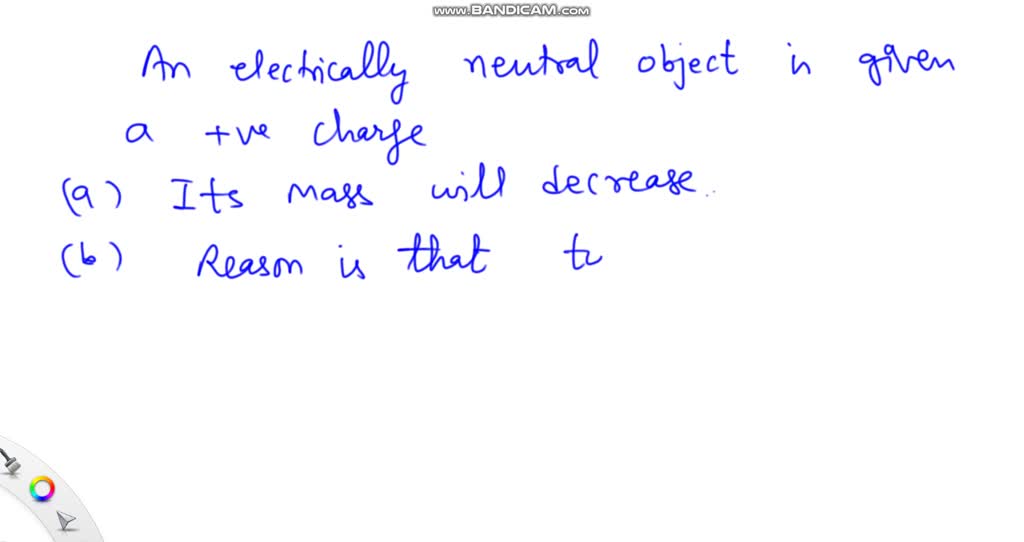 www.BANDICAM.com
An electrically neutral object is given
a +ve charge
(a) Its mass will decrease.
(b) Reason is that to